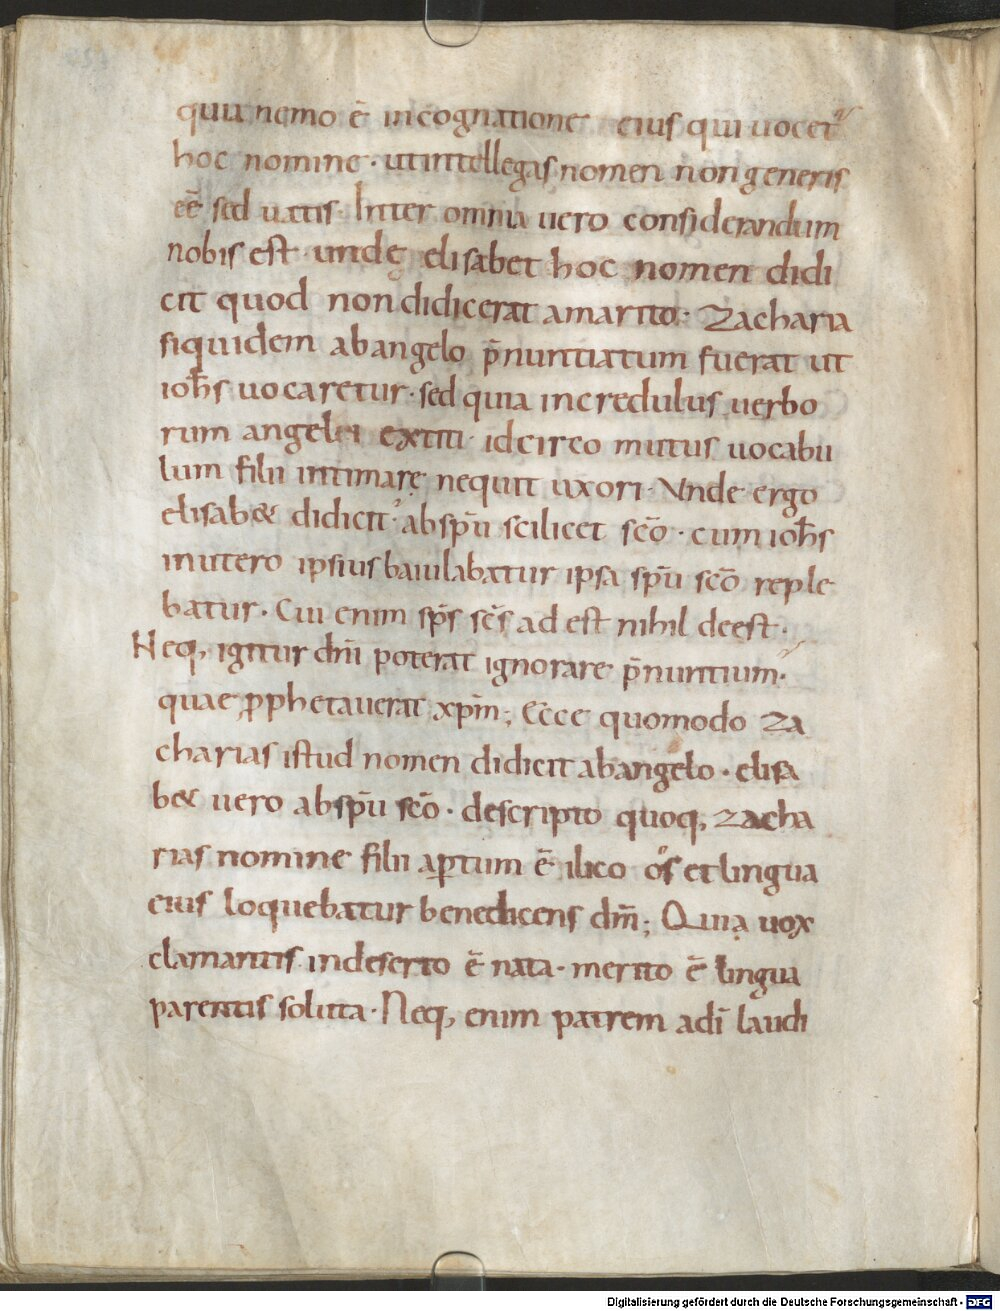 quia nemo ē in cognatione eius qui uocet᷑
hoc nomine · ut intellegas nomen non generis
eē sed uatis · Inter omnia uero considerandum
nobis est · unde elisabet hoc nomen didi
cit quod non didicerat a marito · Zacharia
siquidem ab angelo p̄nuntiatum fuerat ut
ioħs uocaretur · sed quia incredulus uerbo
rum angeli extiti · idcirco mutus uocabu
lum filii intimare nequit uxori · Unde ergo
elisab& didicit · ab sp̄u scilicet sc̄o · cum ioħs
in utero ipsius baiulabatur ipsa sp̄u sc̄o reple
batur · Cui enim sp̄s sc̄s adest nihil deest ·
Neq, igitur dn̄i poterat ignorare p̄nuntium ·
quae p̱phetauerat xp̄m ; Ecce quomodo Za
charias istud nomen didicit ab angelo · elisa
b& uero ab sp̄u sc̄o · descripto quoq, zacha
rias nomine filii aꝑtum ē ilico os et lingua
eius loquebatur benedicens dm̄ ; Quia uox
clamantis in deserto ē nata · merito ē lingua
parentis soluta · Neq, enim patrem adī laudi
Digitalisierung gefördert durch die Deutsche Forschungsgemeinschaft - DFG